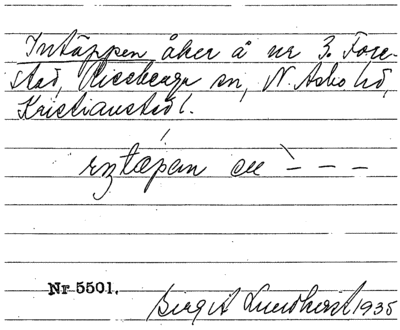 Intäppen åker å nr 3. Fore-
stad, Riseberga sn, N. Åsbo hd,
Kristianstad l.
Nr 5501.
Birgit Lundkvist 1935